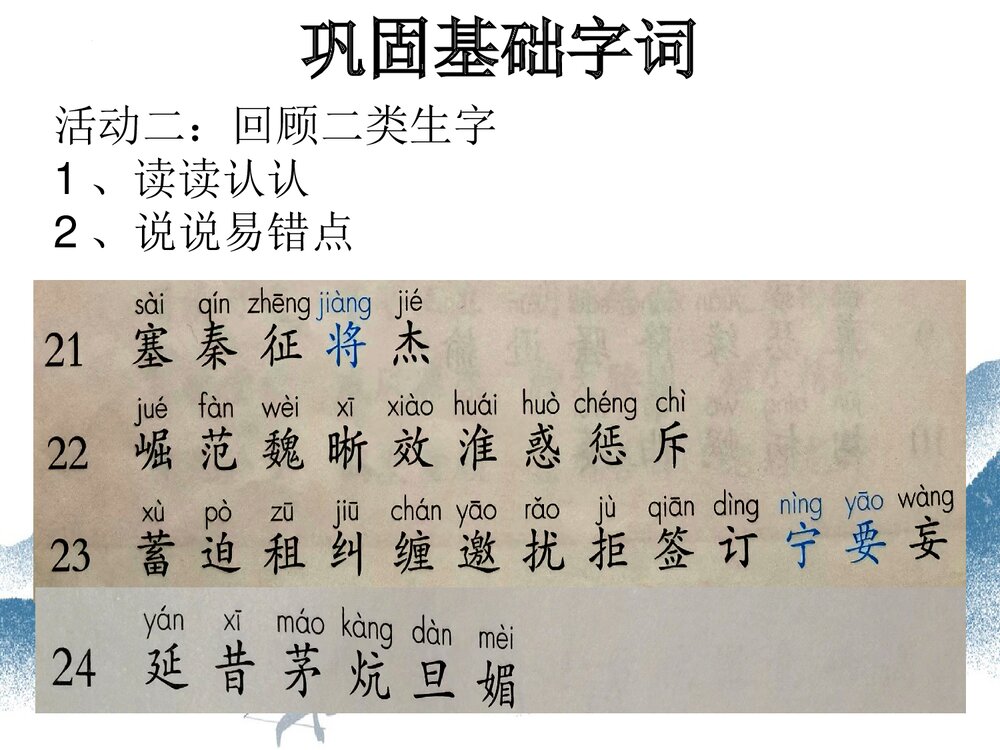 巩固基础字词
活动二：回顾二类生字
1、读读认认
2、说说易错点
sài qín zhēng jiàng jié
21 塞 秦 征 将 杰
jué fàn wèi xī xiào huái huò chéng chì
22 崛 范 魏 晰 效 淮 惑 惩 斥
xù pò zū jiū chán yāo rǎo jù qiān dìng nìng yāo wàng
23 蓄 迫 租 纠 缠 邀 扰 拒 签 订 宁 要 妄
yán xī máo kàng dàn mèi
24 延 昔 茅 炕 旦 媚